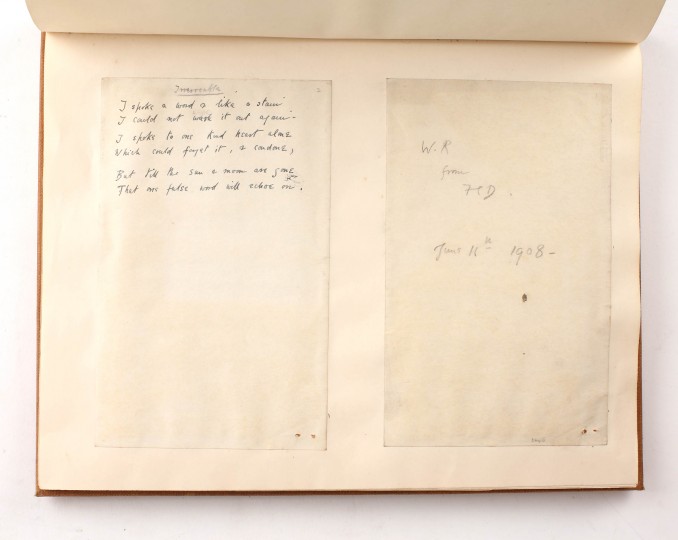 Irrevocable.
I spoke a word & like a stain
I could not wash it out again.
I spoke to one kind heart alone
Which could forget it, & condone,
But till the sun & moon are gone
That one false word will echo on.
2.
W.R
from
June 11th 1908-